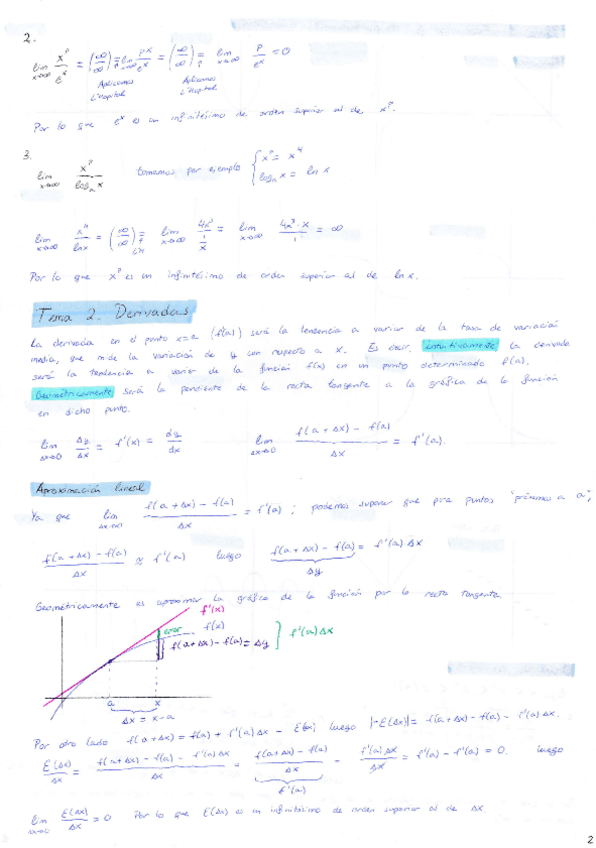 2.
lim x→∞ x^p / e^x = (∞/∞) = lim x→∞ px / e^x = (∞/∞) = lim x→∞ p / e^x = 0
Aplicamos L'Hopital Aplicamos L'Hopital
Por lo que e^x es un infinitésimo de orden superior al de x^p.
3.
lim x→∞ x^p / log_a x tomamos por ejemplo { x^p = x^4
log_a x = ln x
lim x→∞ x^4 / ln x = (∞/∞) = L'H lim x→∞ 4x³ / (1/x) = lim x→∞ 4x³·x / 1 = ∞
Por lo que x^p es un infinitésimo de orden superior al de ln x.
Tema 2. Derivadas
La derivada en el punto x=a (f'(a)) será la tendencia a variar de la tasa de variación
media, que mide la variación de y con respecto a x. Es decir, intuitivamente la derivada
será la tendencia a variar de la función f(x) en un punto determinado f(a).
Geométricamente será la pendiente de la recta tangente a la gráfica de la función
en dicho punto.
lim Δx→0 Δy/Δx = f'(x) = dy/dx lim Δx→0 (f(a+Δx) - f(a)) / Δx = f'(a).
Aproximación lineal
Ya que lim Δx→0 (f(a+Δx) - f(a)) / Δx = f'(a); podemos suponer que para puntos "próximos a a",
(f(a+Δx) - f(a)) / Δx ≈ f'(a) luego f(a+Δx) - f(a) = f'(a) Δx
Δy
Geométricamente es aproximar la gráfica de la función por la recta tangente
f'(x)
error f(x)
f(a+Δx) - f(a) = Δy f'(a) Δx
a x
Δx = x-a
Por otro lado f(a+Δx) = f(a) + f'(a) Δx - E(Δx) luego |-E(Δx)| = f(a+Δx) - f(a) - f'(a) Δx.
E(Δx)/Δx = (f(a+Δx) - f(a) - f'(a) Δx) / Δx = (f(a+Δx) - f(a)) / Δx - f'(a) Δx / Δx = f'(a) - f'(a) = 0. luego
f'(a)
lim Δx→0 E(Δx)/Δx = 0 Por lo que E(Δx) es un infinitésimo de orden superior al de Δx.
2